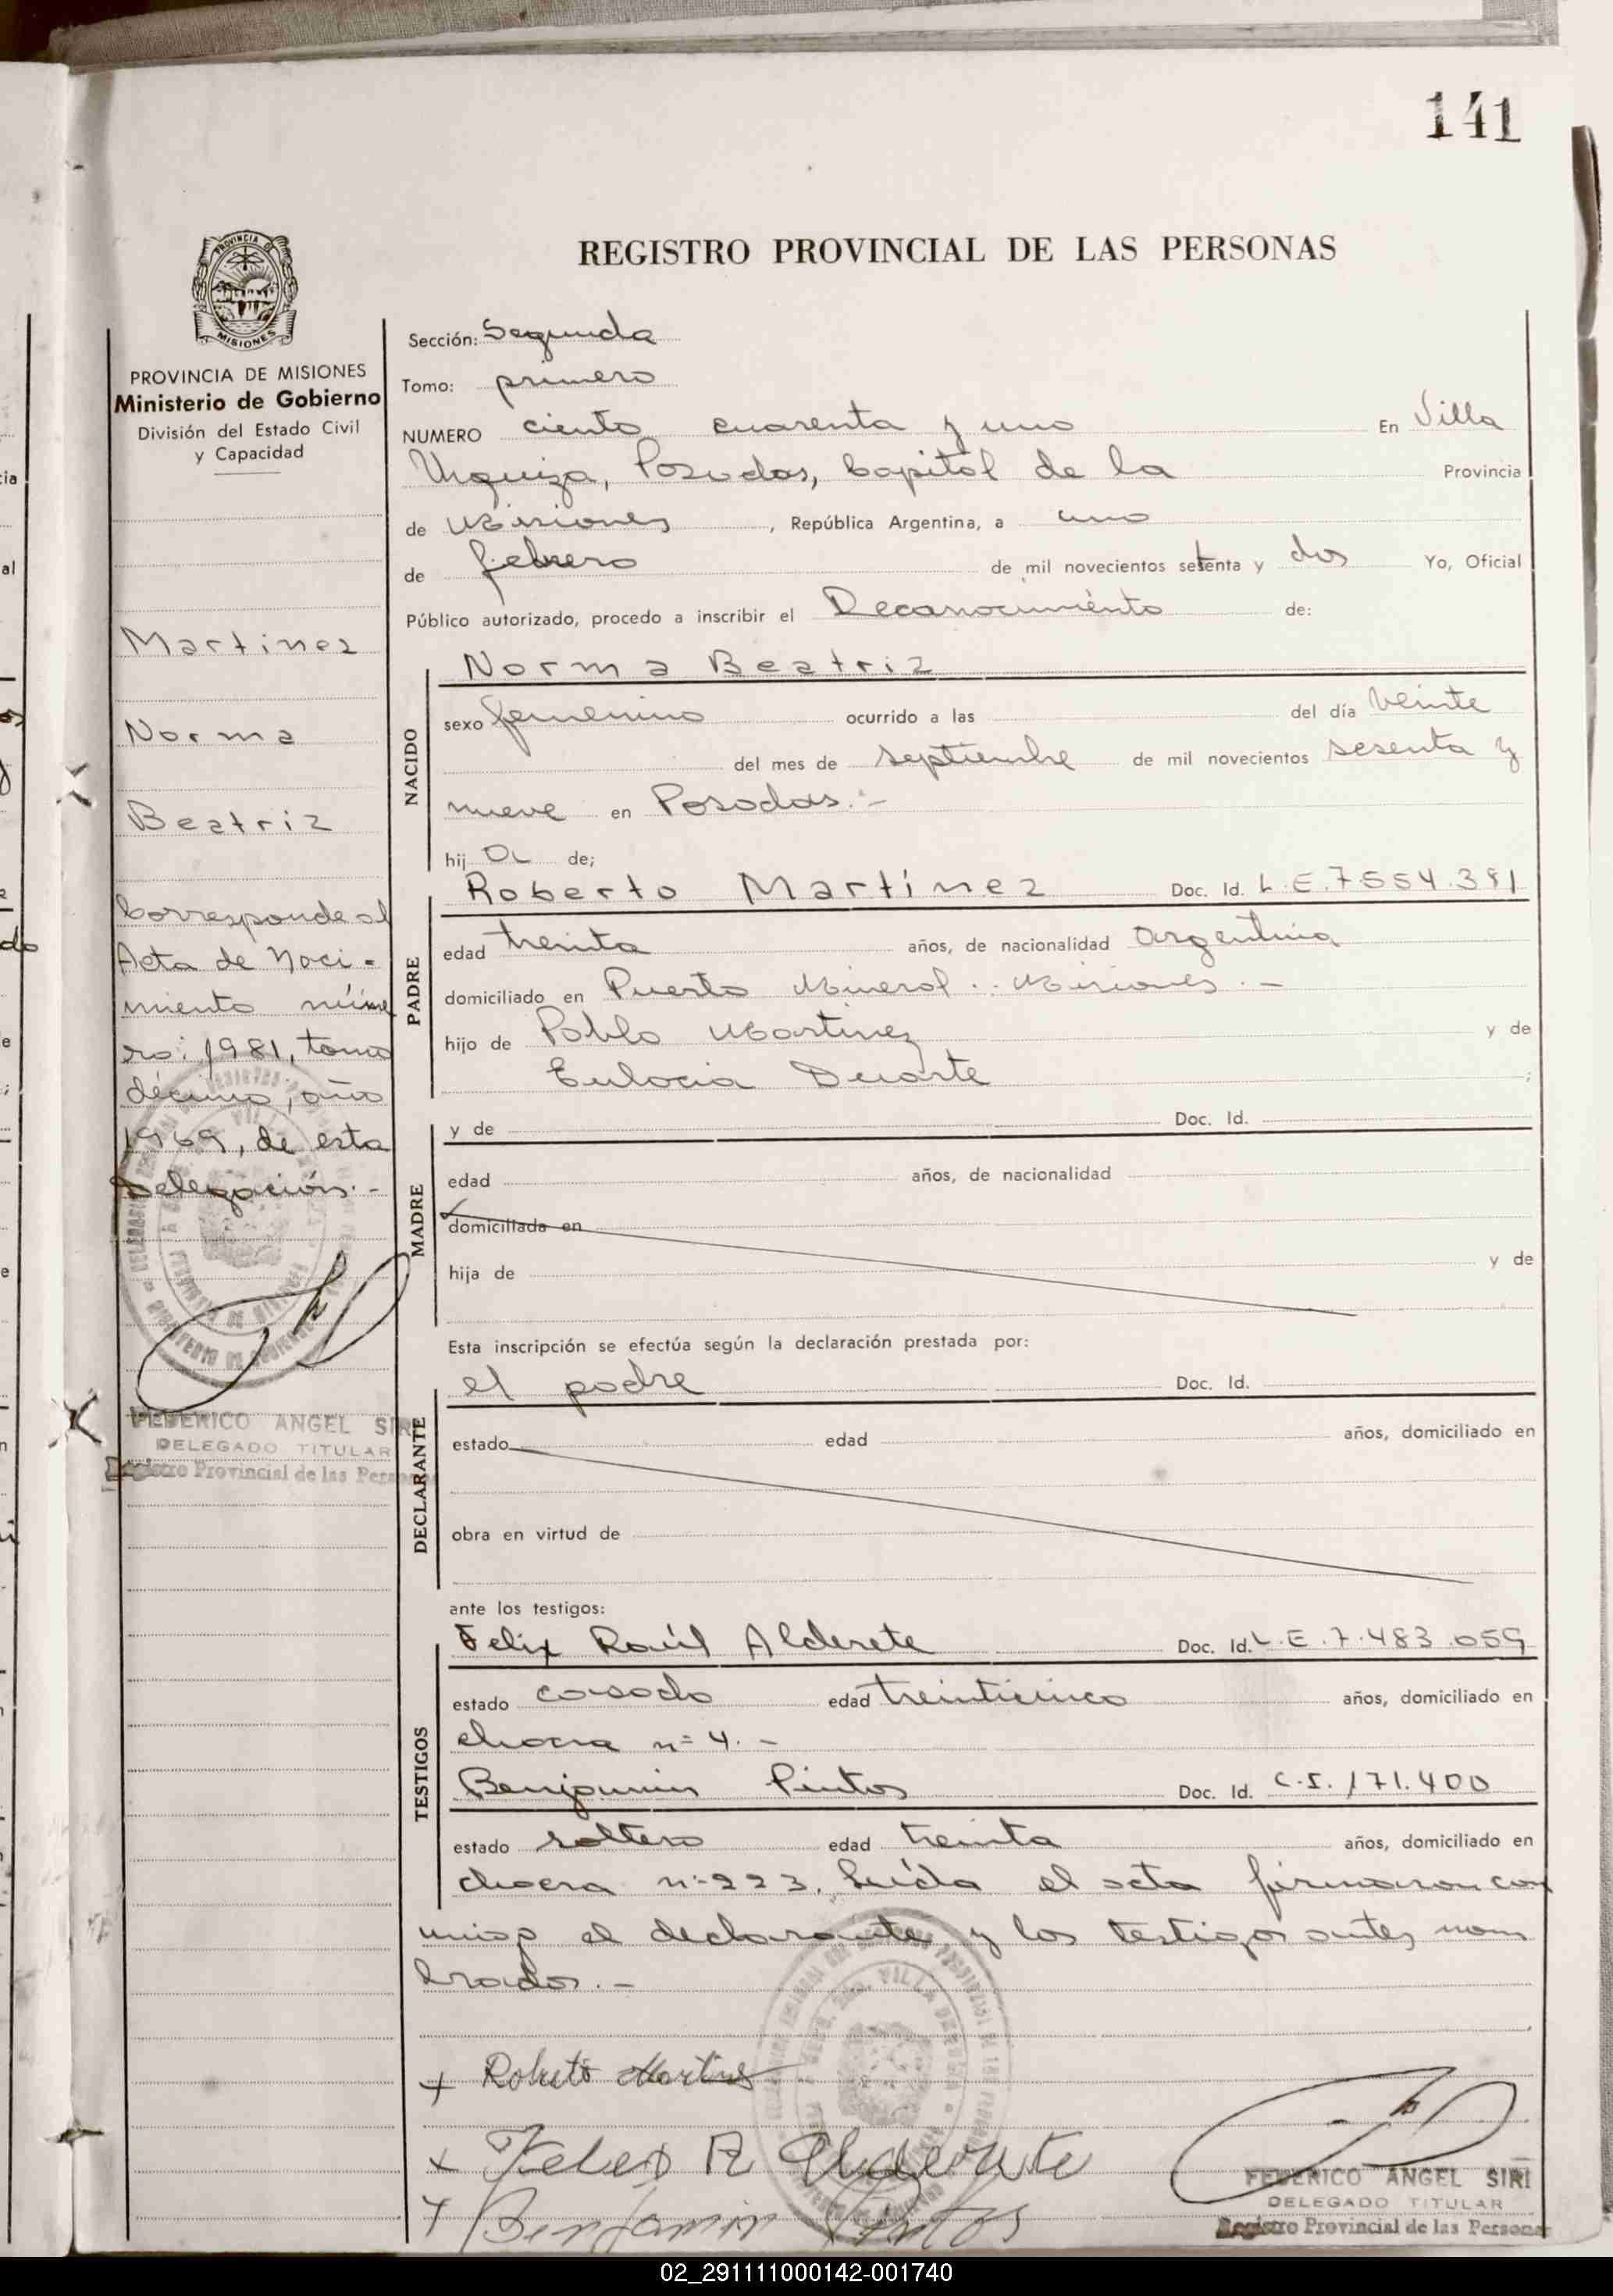 141
REGISTRO PROVINCIAL DE LAS PERSONAS
PROVINCIA DE MISIONES
Ministerio de Gobierno
División del Estado Civil
y Capacidad
Martinez
Norma
Beatriz
Corresponde al
Acta de Naci-
miento núme
ro: 1981, tomo
décimo, año
1969, de esta
Delegación.-
FEDERICO ANGEL SIRI
DELEGADO TITULAR
Registro Provincial de las Personas
Sección: Segunda
Tomo: primero
NUMERO ciento cuarenta y uno En Villa
Urquiza, Posadas, Capital de la Provincia
de Misiones, República Argentina, a uno
de febrero de mil novecientos setenta y dos Yo, Oficial
Público autorizado, procedo a inscribir el Reconocimiento de:
NACIDO
Norma Beatriz
sexo femenino ocurrido a las del día veinte
del mes de septiembre de mil novecientos sesenta y
nueve en Posadas.-
hij a de;
PADRE
Roberto Martínez Doc. Id. L.E.7.554.391
edad treinta años, de nacionalidad argentina
domiciliado en Puerto Mineral.. Misiones.-
hijo de Pablo Martinez y de
Eulocia Duarte ;
MADRE
y de Doc. Id.
edad años, de nacionalidad
domiciliada en
hija de y de
Esta inscripción se efectúa según la declaración prestada por:
DECLARANTE
el padre Doc. Id.
estado edad años, domiciliado en
obra en virtud de
ante los testigos:
TESTIGOS
Felix Raúl Alderete Doc. Id. L.E.7.483.059
estado casado edad treinticinco años, domiciliado en
chacra n=4.-
Benjamin Pintos Doc. Id. C.I. 171.400
estado soltero edad treinta años, domiciliado en
chacra n=223. Leída el acta firmaron con
migo el declarante y los testigos antes nom
brados.-
Roberto Martinez
Felix R Alderete
Benjamin Pintos
FEDERICO ANGEL SIRI
DELEGADO TITULAR
Registro Provincial de las Personas
02_291111000142-001740